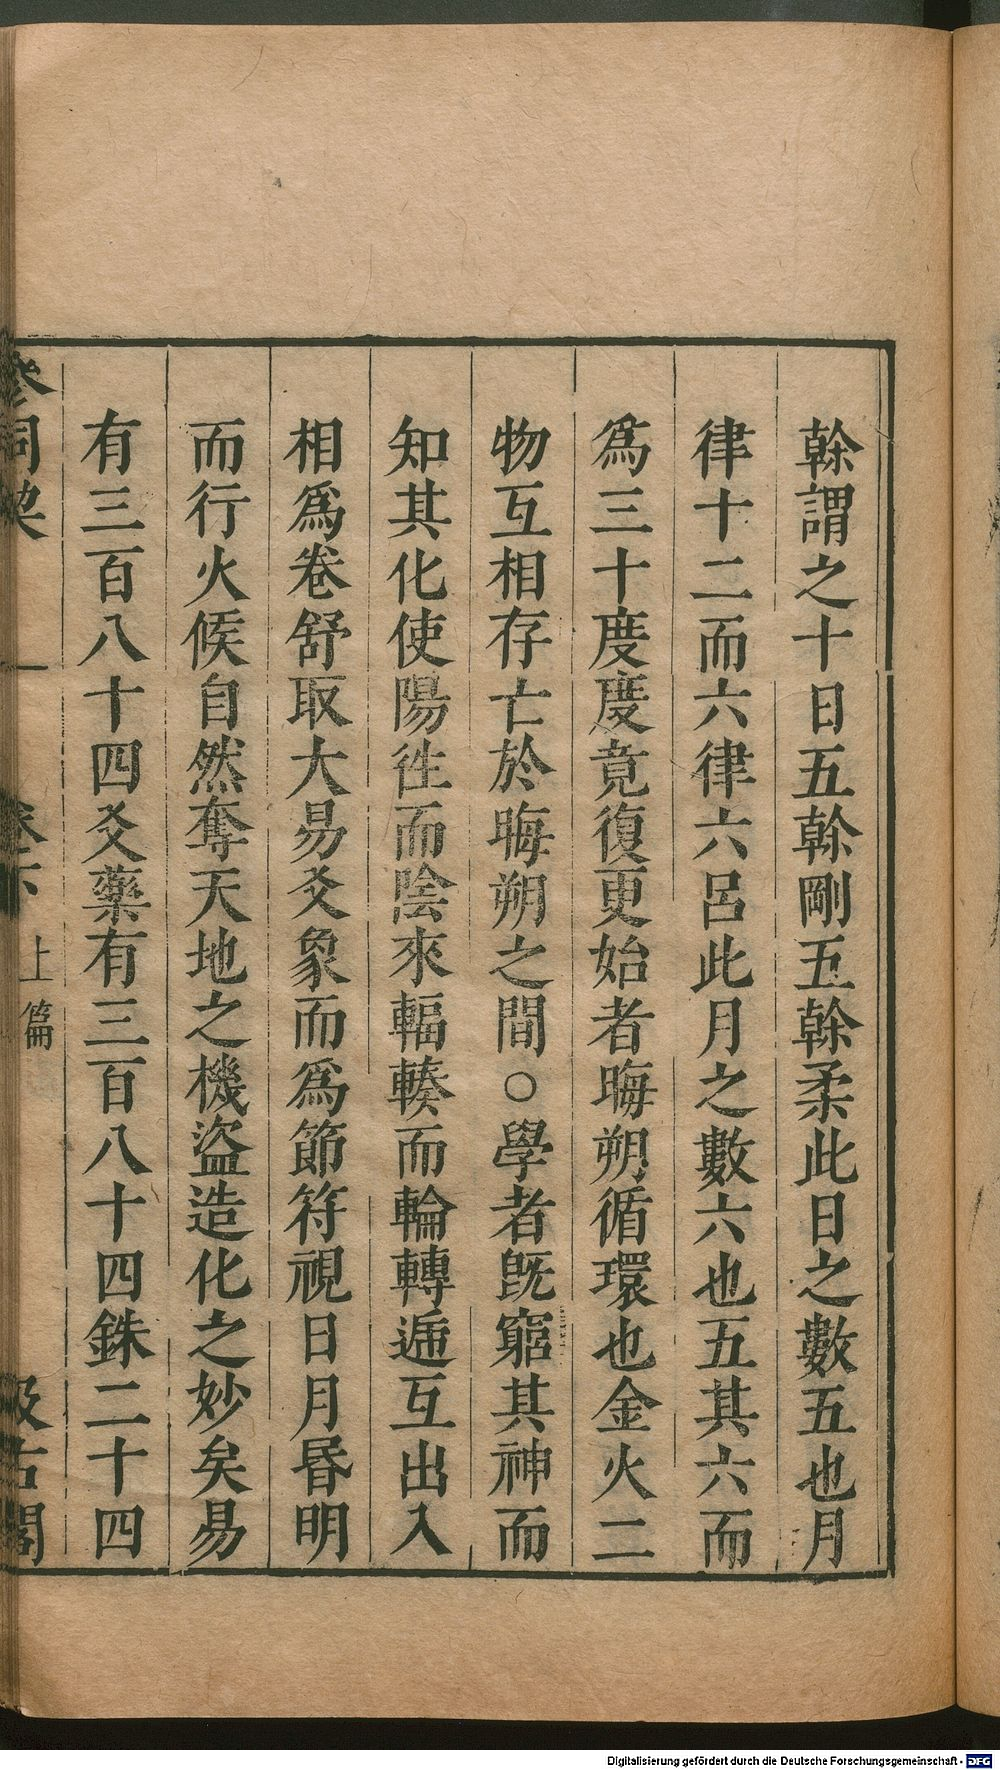 幹謂之十日五幹剛五幹柔此日之數五也月
律十二而六律六呂此月之數六也五其六而
爲三十度度竟復更始者晦朔循環也金火二
物互相存亡於晦朔之間○學者旣窮其神而
知其化使陽徃而陰來輻輳而輪轉遞互出入
相爲卷舒取大易爻象而爲節符視日月昬明
而行火候自然奪天地之機盜造化之妙矣易
有三百八十四爻藥有三百八十四銖二十四
參同契 卷下 上篇 汲古閣
Digitalisierung gefördert durch die Deutsche Forschungsgemeinschaft - DFG